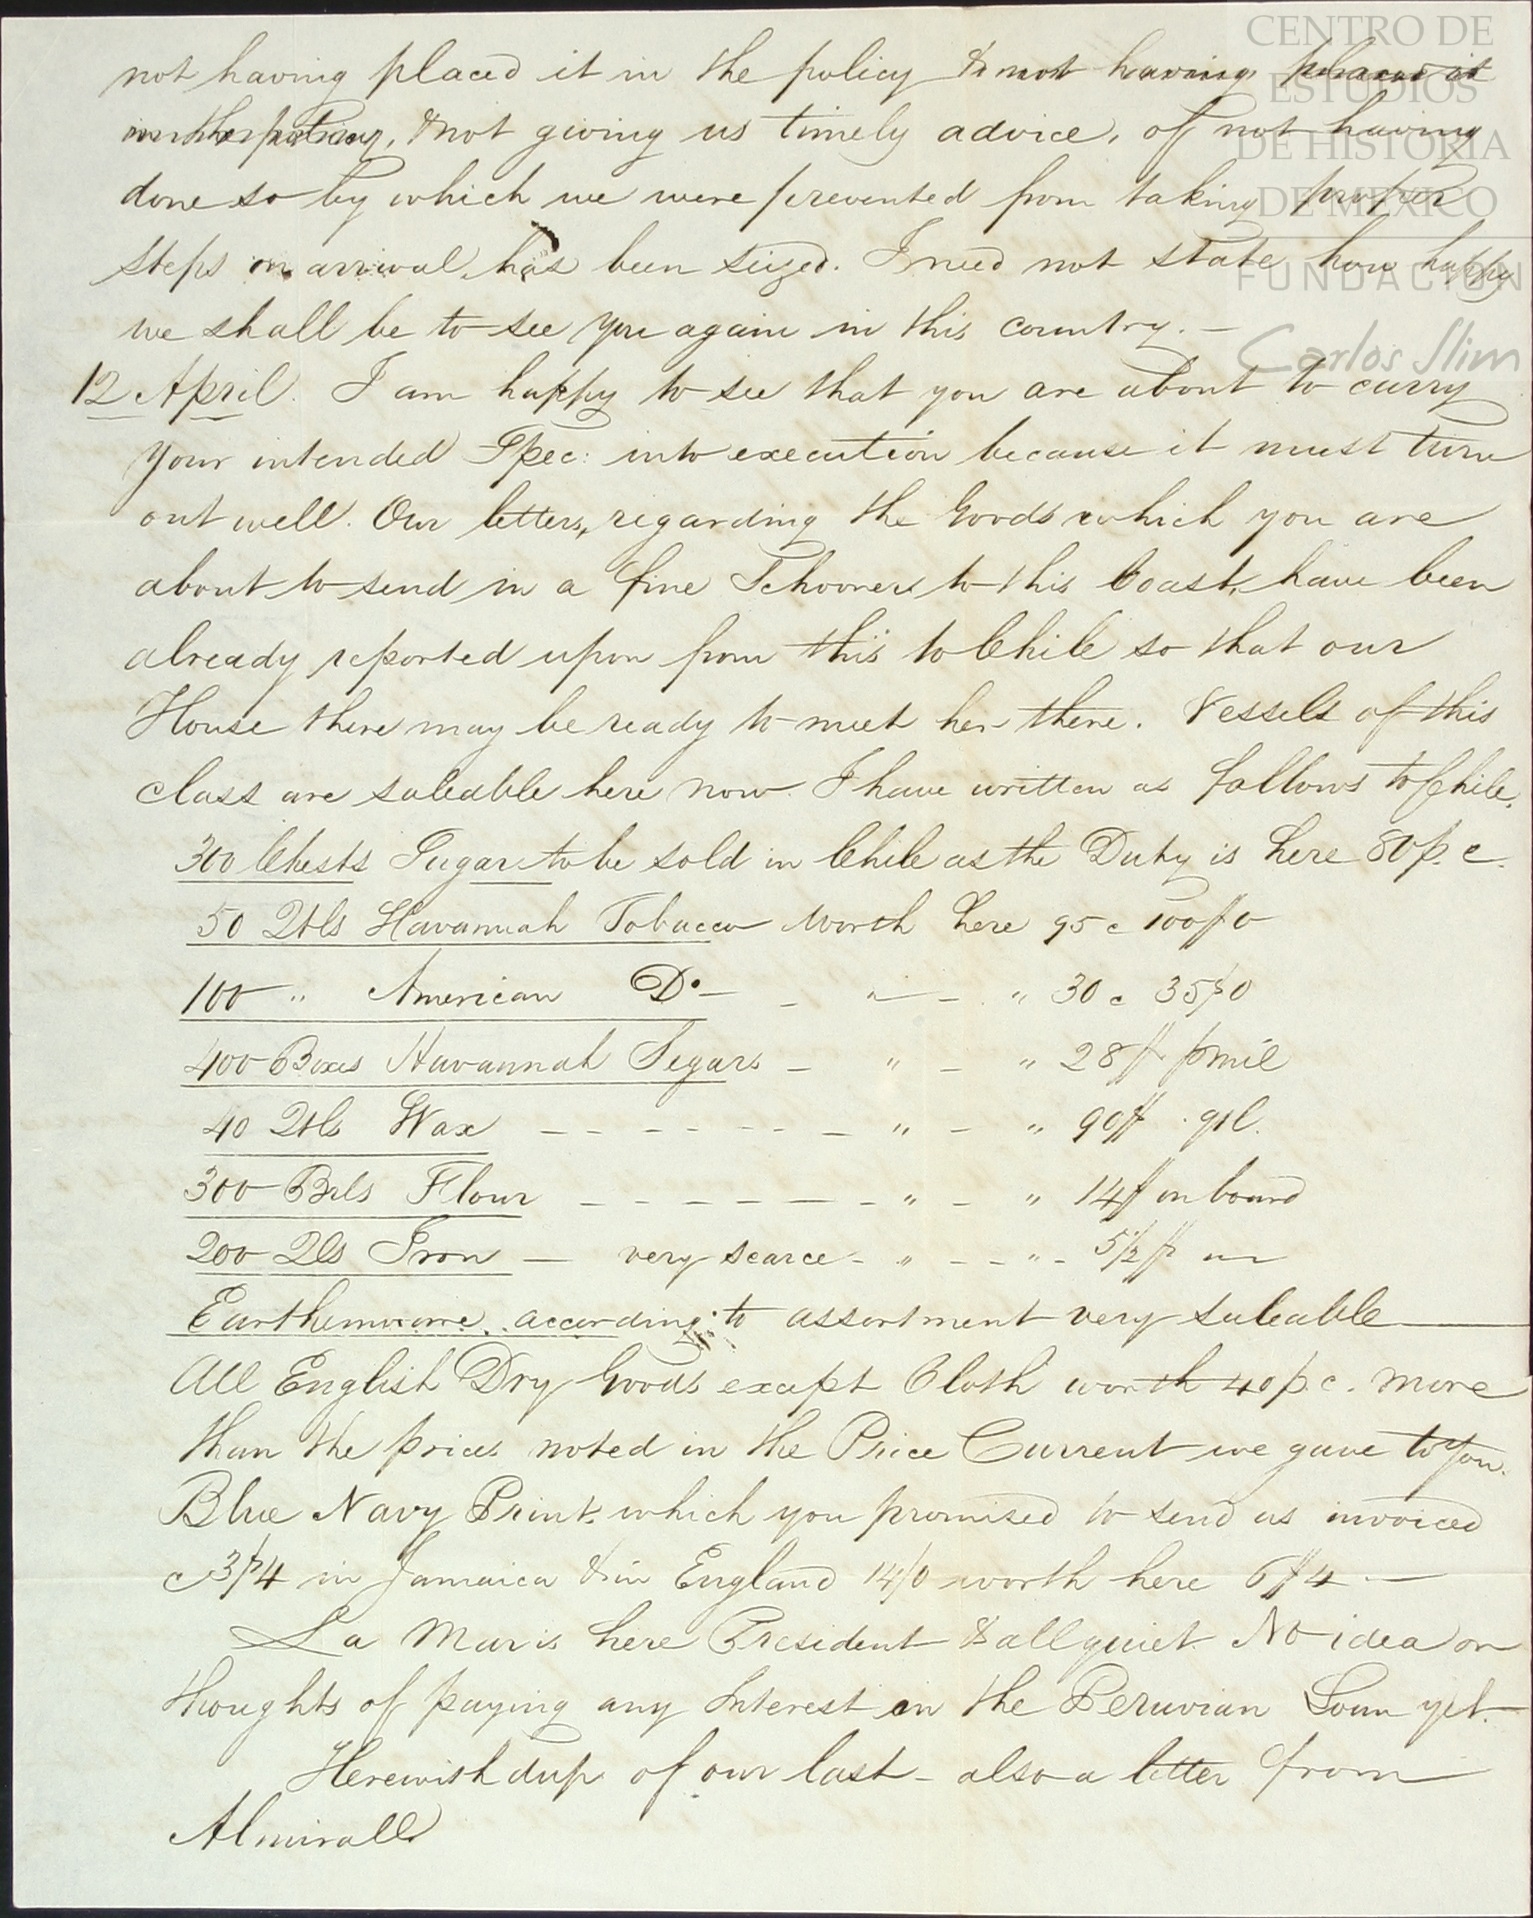 CENTRO DE
ESTUDIOS
DE HISTORIA
DE MEXICO
FUNDACIÓN
Carlos Slim
not having placed it in the policy & not having placed it
in the policy, & not giving us timely advice, of not having
done so by which we were prevented from taking proper
steps on arrival, has been seized. I need not state how happy
we shall be to see you again in this country. —
12 April. I am happy to see that you are about to carry
your intended Spec: into execution because it must turn
out well. Our letters, regarding the Goods which you are
about to send in a fine Schooner to this Coast, have been
already reported upon from this to Chile so that our
House there may be ready to meet her there. Vessels of this
class are saleable here now I have written as follows to Chile.
300 Chests Sugar to be sold in Chile as the Duty is here 80 p. c.
50 Qtls Havannah Tobacco worth here 95 c 100 p 0
100 " American Do — - " — - " 30 c 35 p 0
400 Boxes Havannah Segars — " — " 28 p p mil
40 Qtls Wax — — — — — — — " — " 90 p . qtl.
300 Brls Flour — — — — — — - " — " 14 p on board
200 Qls Iron — very scarce - " — — " - 5 1/2 p
Earthenware according to assortment very saleable
All English Dry Goods except Cloth worth 40 p. c. more
than the prices noted in the Price Current we gave to you.
Blue Navy Prints which you promised to send us invoiced
c 3 p 4 in Jamaica & in England 14/0 worth here 6 p 4 —
La Mar is here President & all quiet. No idea or
thoughts of paying any Interest on the Peruvian Loan yet.
Herewith dup of our last - also a letter from
Almirall